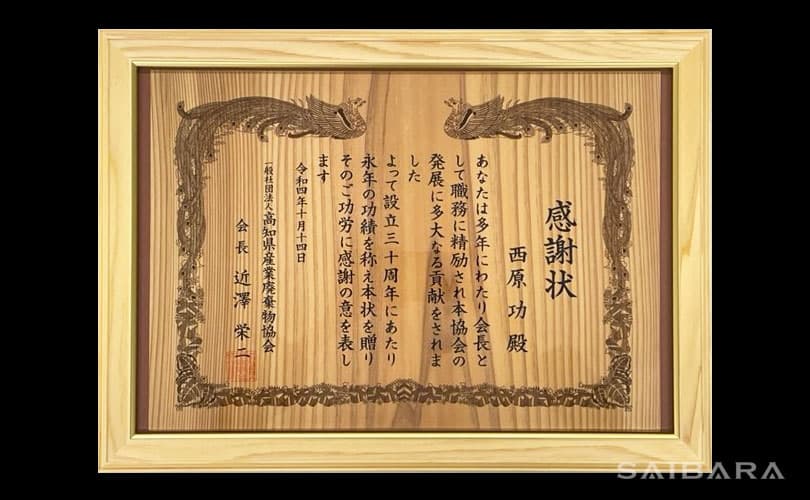 感謝状
西原功殿
あなたは多年にわたり会長と
して職務に精励され本協会の
発展に多大なる貢献をされま
した
よって設立三十周年にあたり
永年の功績を称え本状を贈り
そのご功労に感謝の意を表し
ます
令和四年十月十四日
一般社団法人高知県産業廃棄物協会
会長 近澤栄二
SAIBARA